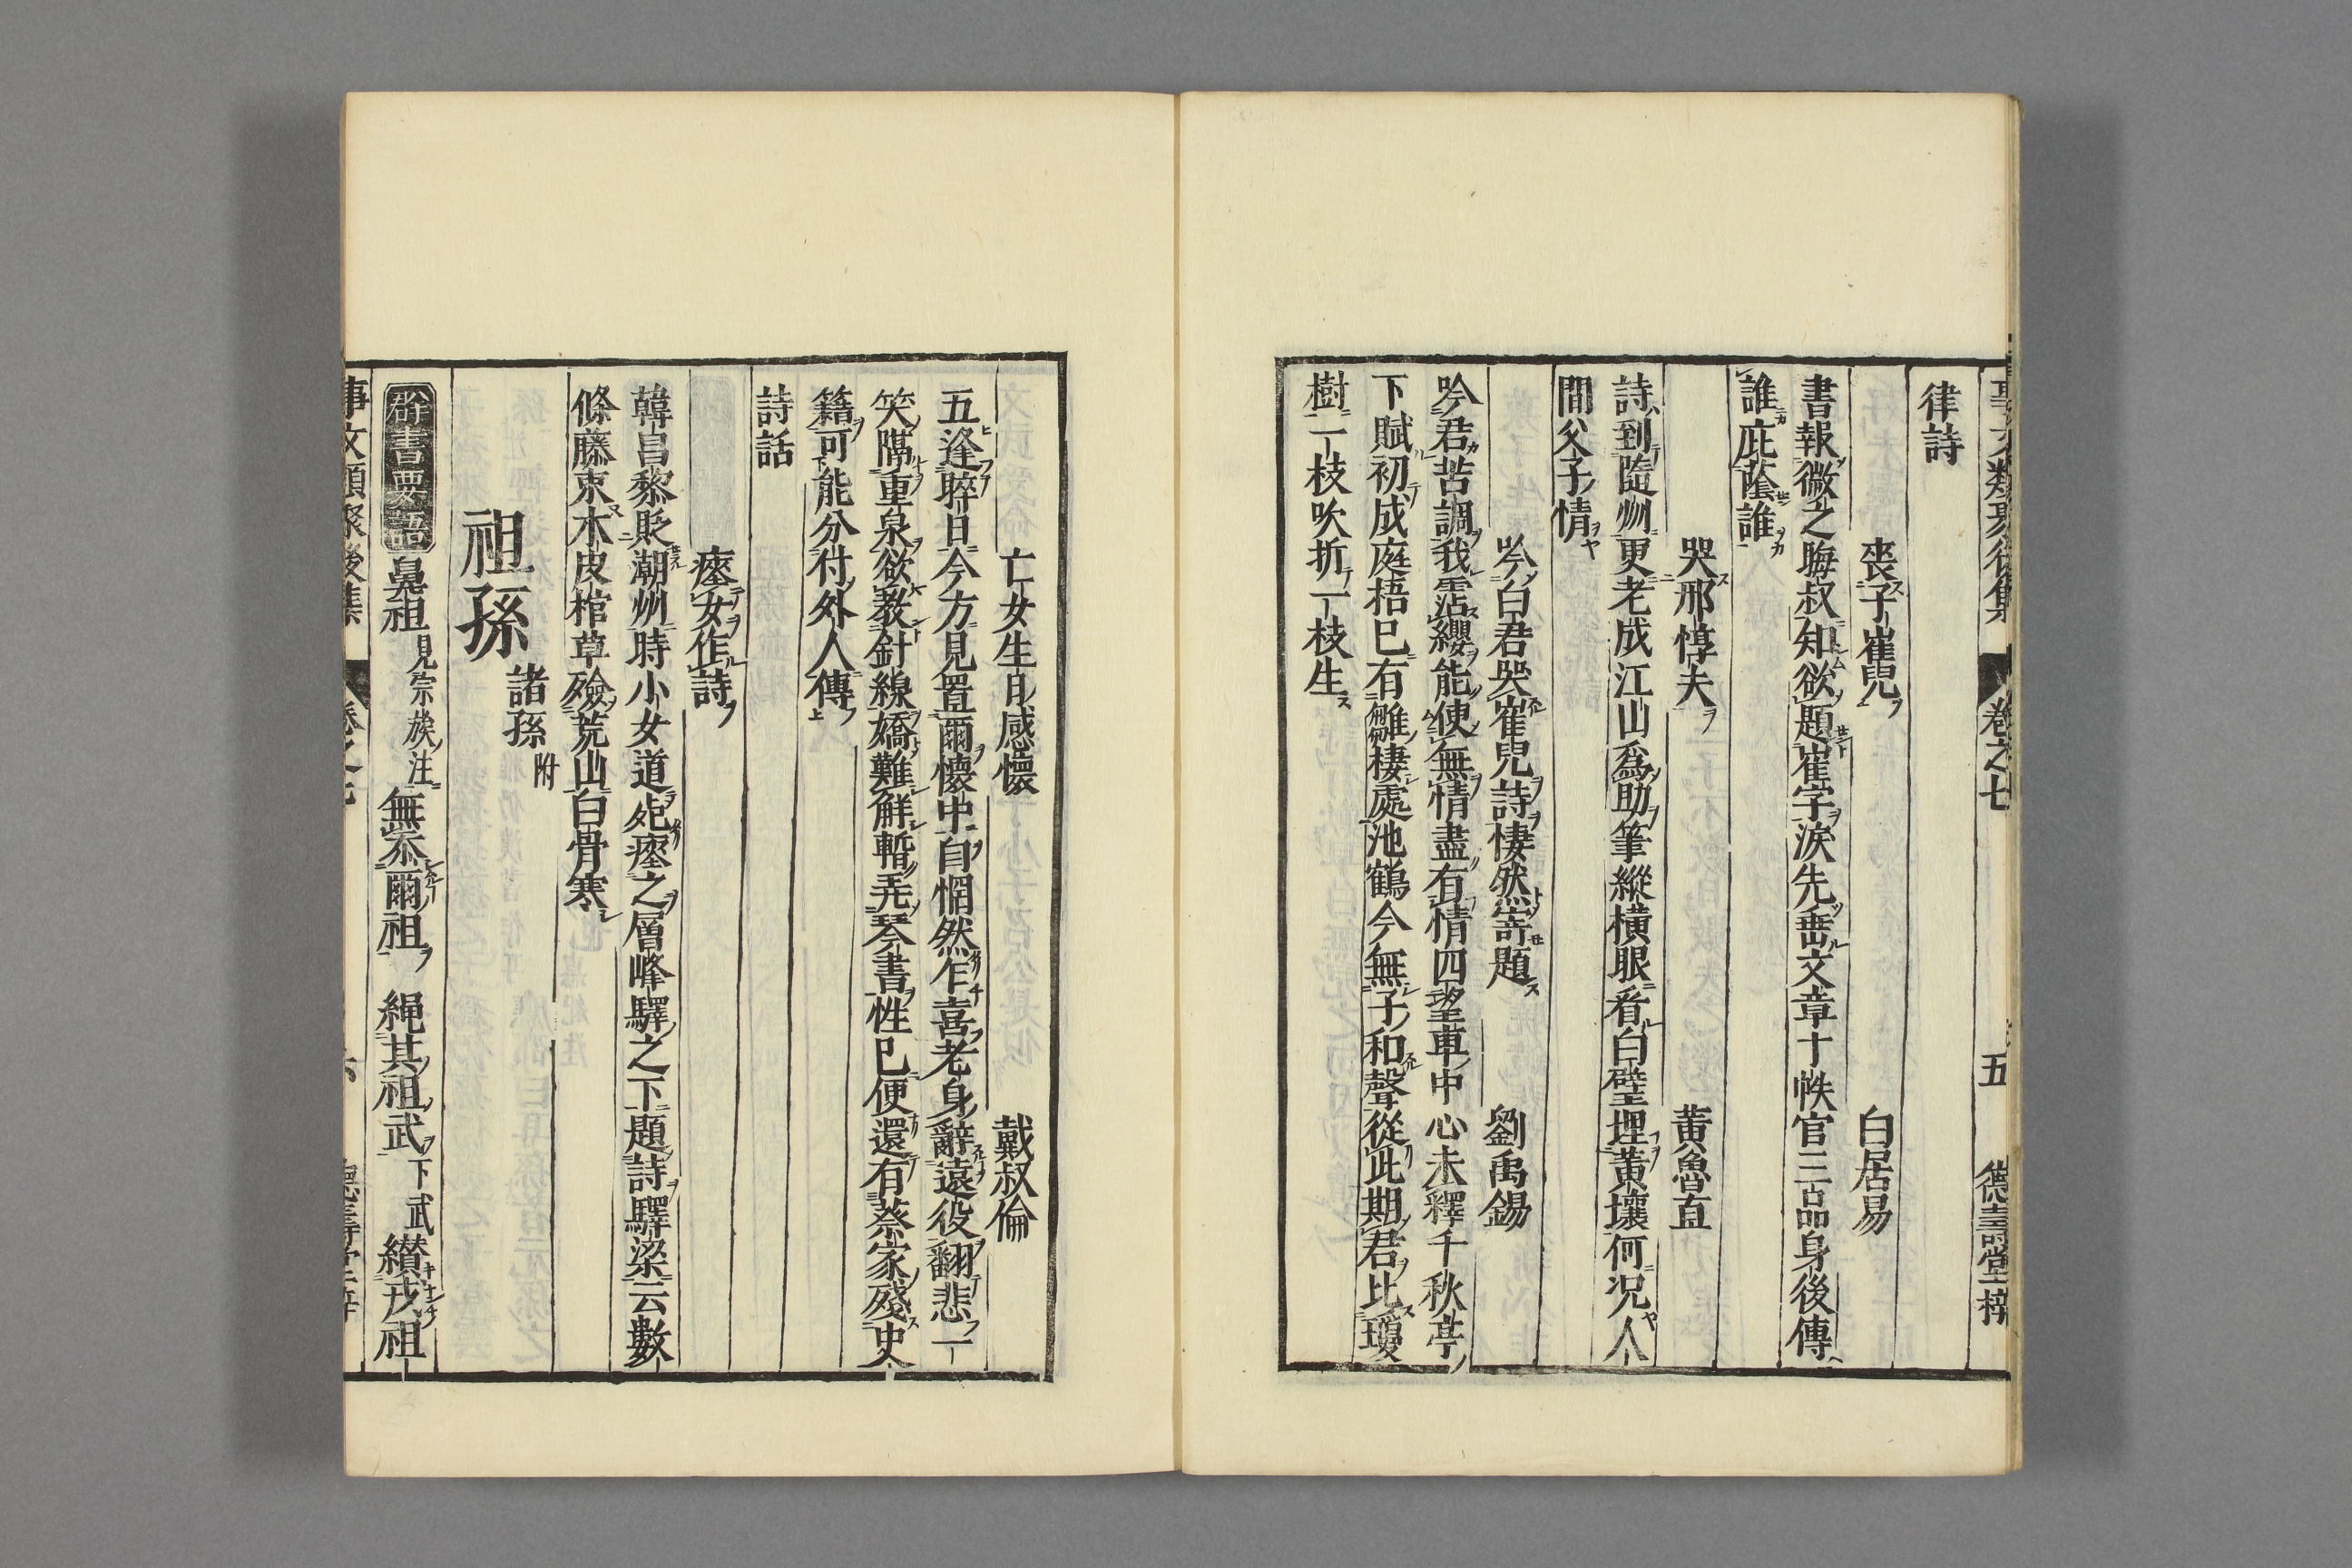 事文類聚後集 卷之七 五 德壽堂梓
律詩
喪子崔兒 白居易
書報微之晦叔知欲題崔字淚先垂文章十帙官三品身後傳
誰庇䕃誰
哭邢惇夫 黃魯直
詩到隨州更老成江山為助筆縱橫眼看白璧埋黃壤何况人
間父子情
吟白君哭崔兒詩悽然寄題 劉禹錫
吟君苦調我霑纓能使無情盡有情四望車中心未釋千秋亭
下賦初成庭梧已有雛棲處池鶴今無子和聲從此期君比瓊
樹一枝吹折一枝生
亡女生日感懷 戴叔倫
五逢晬日今方見置爾懷中自惘然乍喜老身辭遠役翻悲一
笑隔重泉欲教針線嬌難解暫弄琴書性已便還有蔡家殘史
籍可能分付外人傳
詩話
瘞女作詩
韓昌黎貶潮州時小女道死瘞之層峰驛之下題詩驛梁云數
條藤束木皮棺草殮荒山白骨寒
祖孫 諸孫附
群書要語 鼻祖見宗族注 無忝爾祖 繩其祖武下武 纉戎祖
事文類聚後集 卷之七 六 德壽堂梓